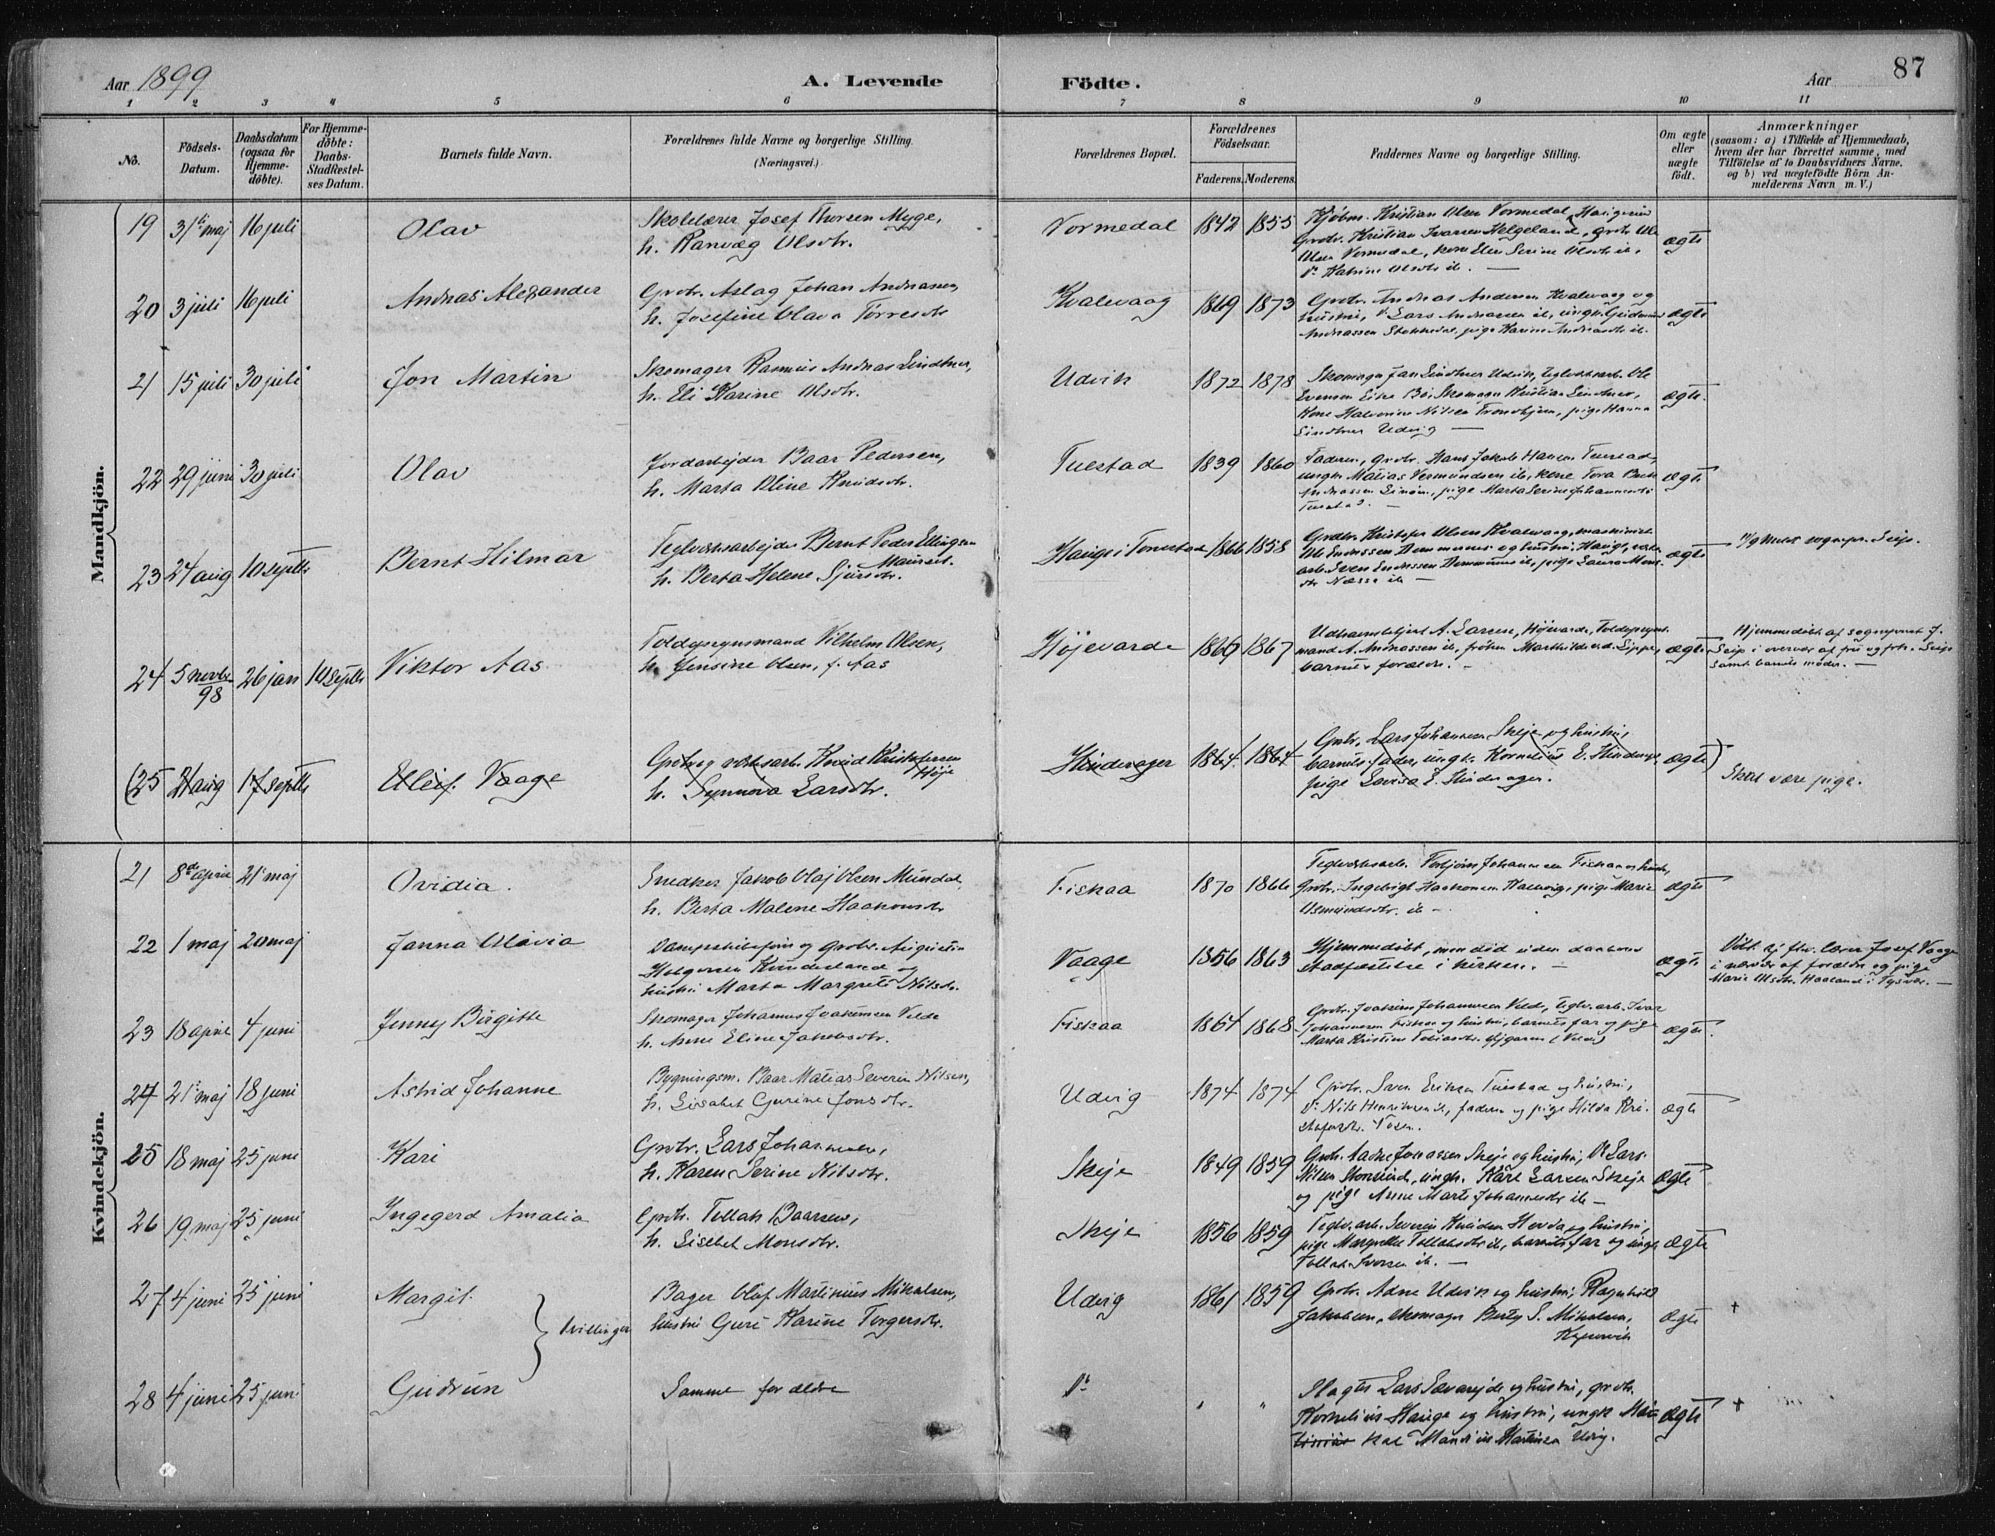 Aar 1899
A. Levende
Födte.
Aar
87
1 2 3 4 5 6 7 8 9 10 11
No.
Födsels-Datum.
Daabsdatum (ogsaa for Hjemmedöbte).
For Hjemmedöbte: Daabs-Stadfestelses Datum.
Barnets fulde Navn.
Forældrenes fulde Navne og borgerlige Stilling. (Næringsvei.)
Forældrenes Bopæl.
Forældrenes Födselsaar.
Faderens. Moderens.
Faddernes Navne og borgerlige Stilling.
Om ægte eller uægte födt.
Anmærkninger
(saasom: a) i Tilfælde af Hjemmedaab, hvem der har forrettet samme, med Tilföielse af to Daabsvidners Navne, og b) ved uægtefödte Börn Anmelderens Navn m. V.)
Mandkjön.
19 31te maj 16 juli Olav
Skolelærer Josef Thorsen Myge,
h. Ranvæg Olsdtr.
Vormedal 1842 1855
Kjöbm. Kristian Olsen Vormedal, Haugesund
Grdbr. Kristian Ivarsen Helgeland, grdbr. Ole
Olsen Vormedal, kone Elen Serine Olsdtr ib.
Do Katrine Olsdtr ib. —
ægte
20 3 juli 16 juli Andreas Alexander
Grdbr. Aslag Johan Andreassen,
h. Josefine Olava Torresdtr
Kvalevaag 1869 1873
Grdbr. Andreas Andersen Kvalevaag og
hustru, Do Lars Andreassen ib, ungk.
Andreassen Stokkedal, pige Karine Andreasdtr ib.
ægte
21 15 juli 30 juli Jon Martin
Skomager Rasmus Andreas Lindtner,
h. Eli Karine Olsdtr.
Udvik 1872 1878
Skomager Jan Lindtner Udvik, teglverksarb. Ole
Evensen Eike Bö, Skomager Kristian Lindtner,
Kone Halvorine Nilsen Trondhjem, pige Hanna
Lindtner Udvig —
ægte.
22 29 juni 30 juli Olav
Jordarbejder Baar Pedersen,
h. Marta Oline Knudsdtr.
Tuestad 1839 1860
Faderen, grdbr. Hans Jakob Hansen Tuestad,
ungk. Matias Vermundsen ib, kone Tora
Andreassen, pige Marta Serine Johannesdtr
Tuestad.
ægte
23 24 aug 10 septbr Bernt Hilmar
Teglverksarbejder Bernt Peder Ellingsen
Maurset
h. Berta Helene Sjursdtr.
Hauge i Torvestad 1866 1858
Grdbr. Kristofer Olsen Kvalevaag, maskinist
Ole Endresen Dommersnes og hustru, Haugesd,
arb. Sven Endresen Dommersnes ib, pige Laura Mons
dtr Næsse ib —
ægte
sognepr. Seip.
24 5 novbr 98 26 jan 10 septbr Viktor Aas
Toldopsynsmand Vilhelm Olsen,
h. Jensine Olsen, f. Aas
Höjevarde 1866 1867
A. Larsen, Höjevarde, Toldopsyns
mand A. Andreassen ib, fröken Mathilde v.d. Lippe,
barnets forældre.
ægte
Hjemmedöbt af sogneprest J.
Seip i overvær af fru og frk. Seip
samt barnets moder. —
(25 21 aug 17 septbr Oleif Vaage
Grdbr. og verksarb. Hovid Kristofersen
Höje
h. Synnöva Larsdtr.
Hindevager 1864 1864
Grdbr. Lars Johannesen Skeje og hustru,
barnets fader, ungk. Kornelius E. Hindevager,
pige Lovisa E. Hindevager.
ægte)
Skal være pige.
Kvindekjön.
21 8de april 21 maj Ovidia.
Snedker Jakob Olaj Olsen Mundal,
h. Berta Malene Haakonsdtr
Fiskaa 1870 1866
Teglverksarb. Torbjörn Johannesen Fiskaa og hustru,
Grdbr. Ingebrigt Haakonsen Kallevig, pige Marie
Osmundsdtr. ib —
ægte
22 1 maj 20 maj Janna Olavia
Dampskibsförer og grdbr. Augustin
Holgersen Kinderland og
hustru Marta Margrete Nilsdtr.
Vaage 1856 1863
Hjemmedöbt, men död uden daabens
stadfæstelse i kirken. —
ægte
Döbt af fhv. lærer Josef Vaage
i nærvær af forældre og pige
Marie Olsdtr. Haaland i Tysvær. —
23 18 april 4 juni Jenny Birgitte
Skomager Johannes Joakimsen Velde
h. Anne Eline Jakobsdtr.
Fiskaa 1864 1868
Grdbr. Joakim Johannesen Velde, Teglv. arb. Ivar
Johannesen Fiskaa og hustru, barnets far og pige
Marta Kristine Tobiasdtr. (Velde)
ægte.
24 21 maj 18 juni Astrid Johanne
Bygningsm. Baar Matias Severin Nilsen,
h. Lisabet Gurine Jonsdtr.
Udvig 1874 1874
Grdbr. Sven Eriksen Tuestad og hustru,
Do Nils Henriksen ib, faderen og pige Hilda Kri
stofersdtr. Tosen.
ægte
25 18 maj 25 juni Kari
Grdbr. Lars Johannesen,
h. Karen Serine Nilsdtr.
Skeje 1849 1859
Grdbr. Aadne Jonassen Skeje og hustru, Do Lars
Nilsen Storesund, ungk. Kåre Larsen Skeje
og pige Anne Marte Johannesdtr ib —
ægte
26 19 maj 25 juni Ingegerd Amalia
Grdbr. Tollak Baarsen,
h. Lisebet Monsdtr.
Skeje 1856 1859
Teglv. arb. Severin Knudsen Hervda og hustru,
pige Margrethe Tollaksdtr ib, barnets far og ungk.
Tollak Iversen ib. —
ægte
27 4 juni 25 juni Margit.
tvillinger
Bager Olaf Martinius Mikalsen,
hustru Guri Karine Torgersdtr.
Udvig 1861 1859
Grdbr. Adne Udvik og hustru, Ragnhild
Jakobsen, skomager Berty S. Mikalsen,
Kopervik
ægte +
28 4 juni 25 juni Gudrun
Samme forældre
Do " "
Slagter Lars Sævarejde og hustru, grdbr.
Kornelius Hauge og hustru, ungk
Mandius Martinsen Udvig.
ægte +